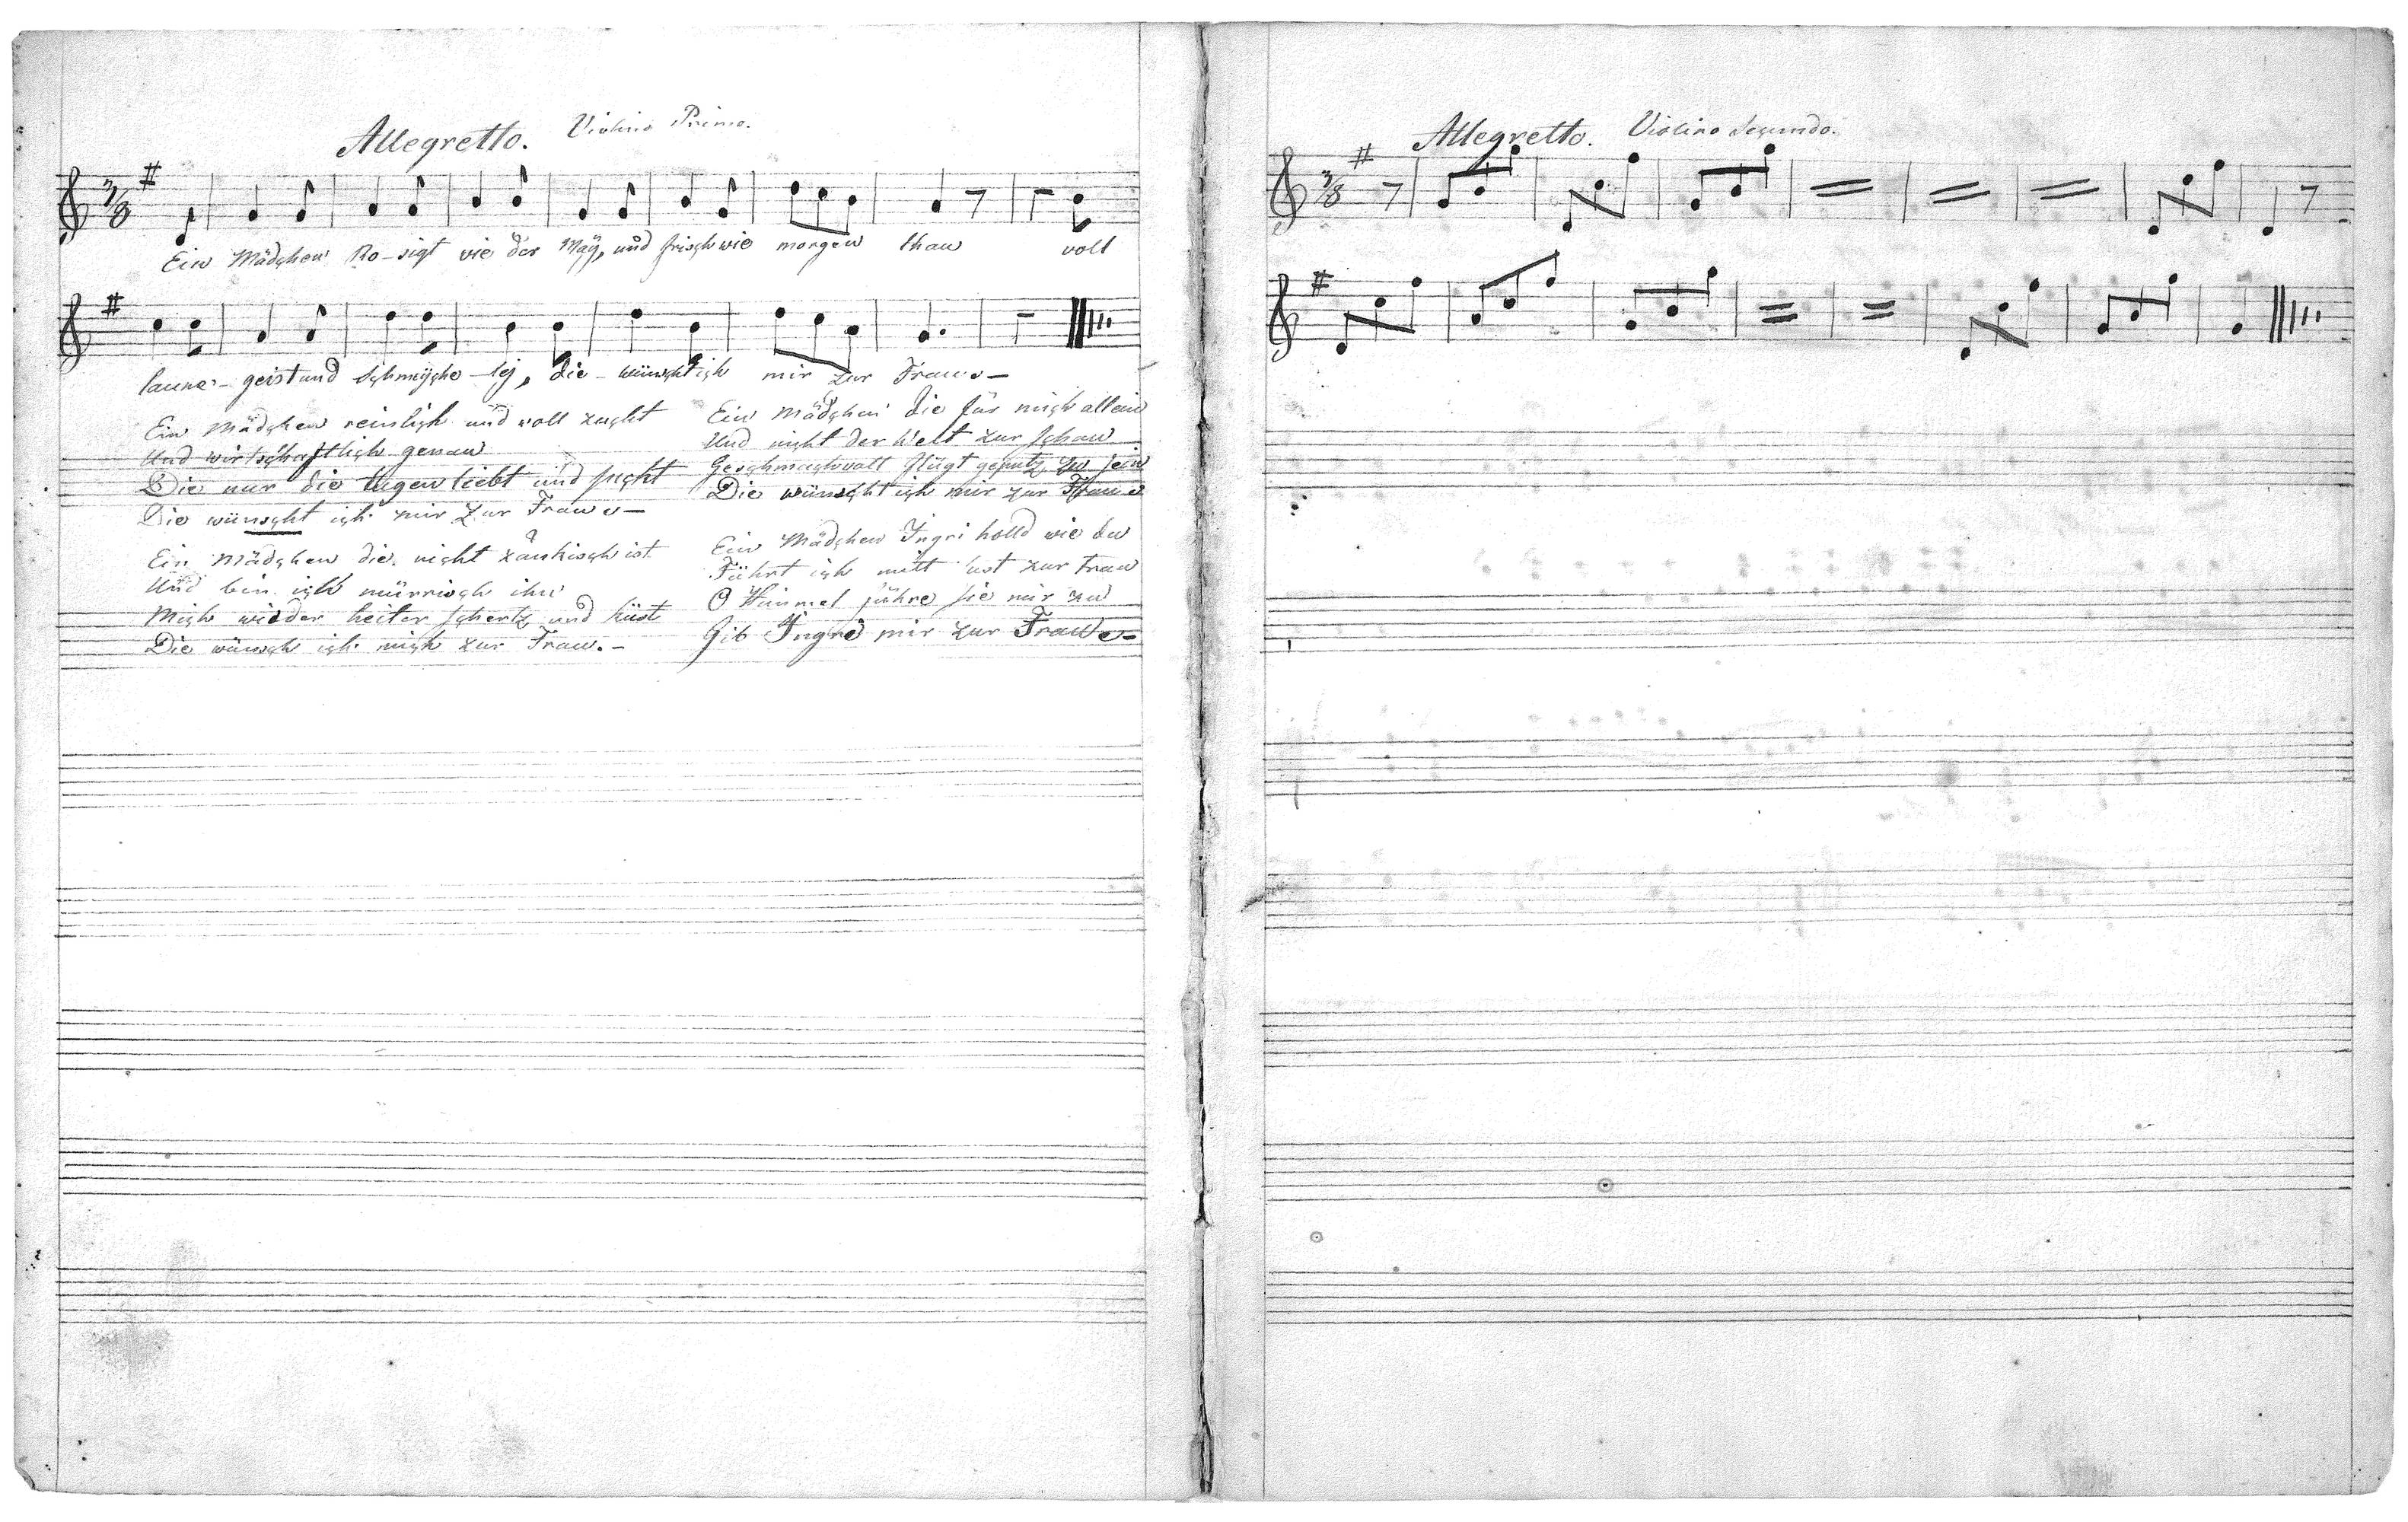 Allegretto. Violino Primo.
3/8
Ein Mädchen Ro-sigt wie der Maÿ, und frisch wie morgen thau voll
laune- geist und Schmeÿche-lej, die- wünscht ich mir zur Frau.-
Ein Mädchen reinlich und voll zucht
Und wirtschaftlich genau
Die nur die tugen liebt und sucht
Die wünscht ich mir zur Frau.-
Ein Mädchen die nicht zänkisch ist
Und bin ich mürrisch ihn
Mich widder heiter schertz und küst
Die wünsch ich mich zur Frau.-
Ein Mädchen die für mich allein
Und nicht der Welt zur schau
Geschmachvoll geputz zu sein
Die wünscht ich mir zur Frau
Ein Mädchen Ingri holld wie du
Führt ich mitt lust zur trau
O Himmel führe sie mir zu
Gib Ingri mir zur Frau.-
Allegretto. Violino Secundo.
3/8